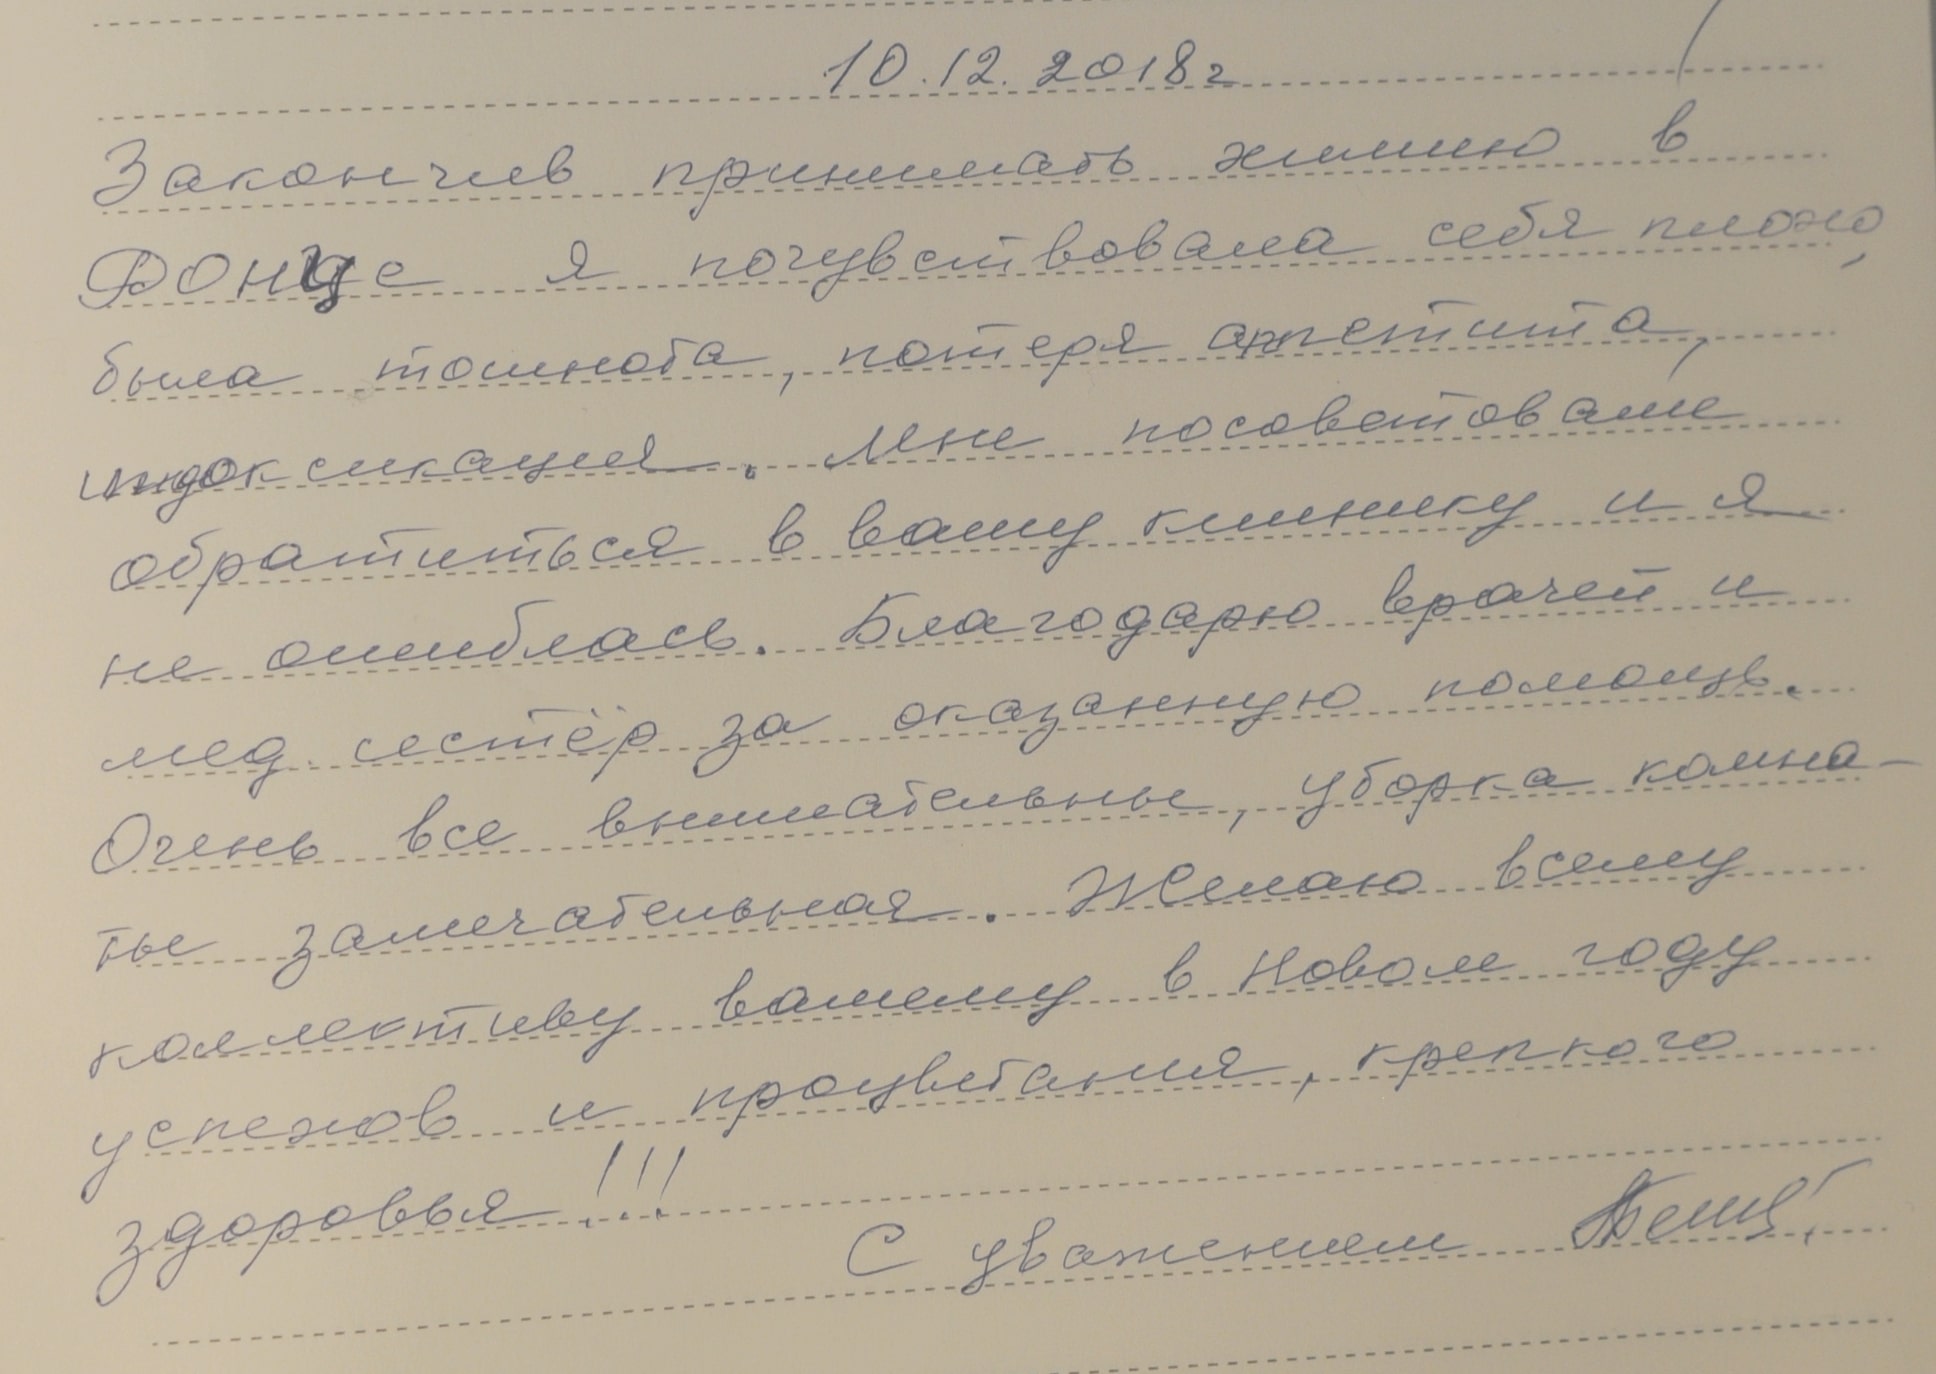 10.12.2018г
Закончив принимать химию в
РОНЦе я почувствовала себя плохо,
была тошнота, потеря аппетита,
интоксикация. Мне посоветовали
обратиться в вашу клинику и я
не ошиблась. Благодарю врачей и
мед. сестёр за оказанную помощь.
Очень все внимательны, уборка комна-
ты замечательная. Желаю всему
коллективу вашему в Новом году
успехов и процветания, крепкого
здоровья!!!
С уважением